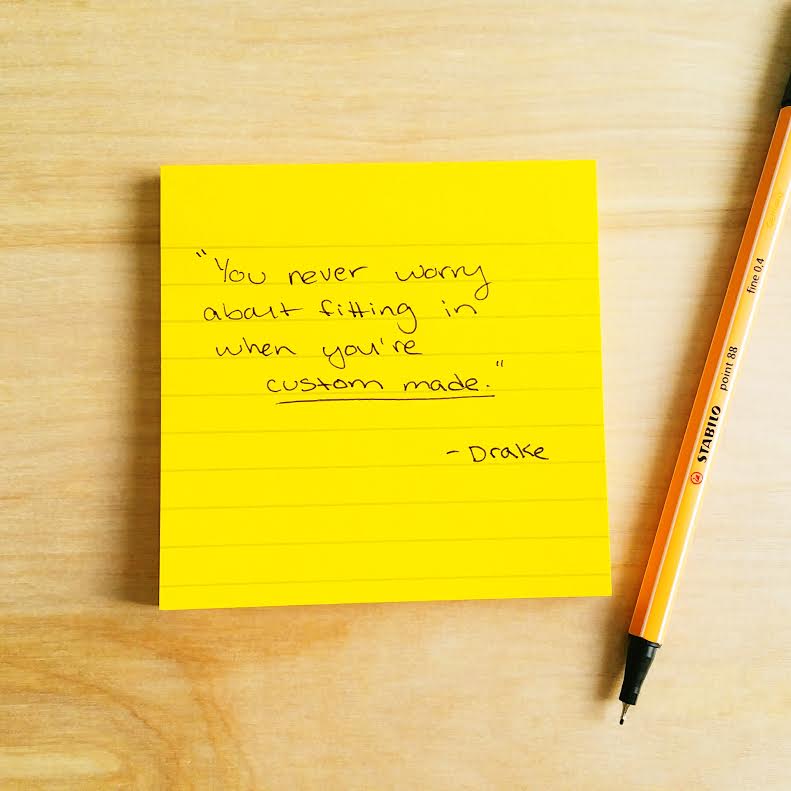 "You never worry
about fitting in
when you're
custom made."
- Drake
STABILO point 88 fine 0.4